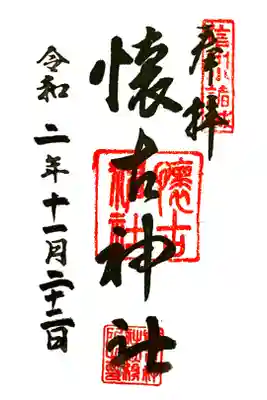 奉拝
懐古神社
令和二年十一月二十二日
信州小諸
懐古
神社